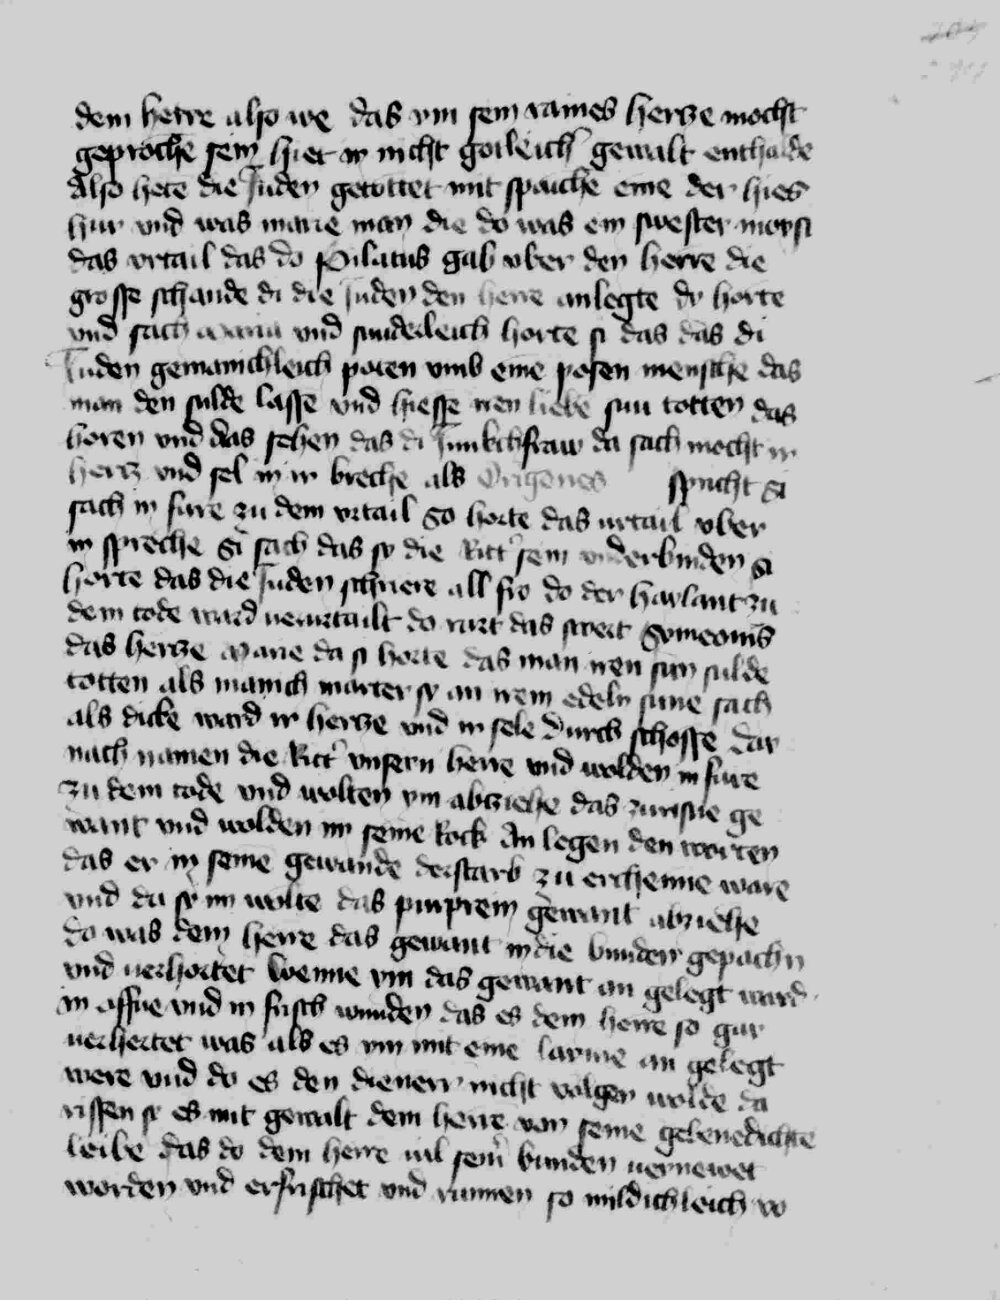 dem herre also we das ym sein raines hertze mocht
geproche sein hiet in nicht gotleich gewalt enthalde
Also hete die Juden getottet mit spaiche eine der hies
hur und was marie man die do was ein swester moysi
das vrtail das do Pilatus gab vber den herre die
grosse schande di die Juden den herre anlegte do horte
vnd sach maria vnd sunderleich horte si das das di
Juden gemainchleich poten vmb eine posen mensche das
man den sulde lasse vnd hiesse iren liebe sun totten das
horen vnd das sehen das di Junkchfraw da sach mocht ir
hertz vnd sel in ir breche als Origenes spricht Si
sach in fure zu dem vrtail So horte das urtail vber
in spreche Si sach das sy die Ritt sein vnderbinden Si
horte das die Juden schriere all fro do der haylant zu
dem tode ward uerurtailt do rurt das swert Symeonis
das hertze Marie da si horte das man iren sun sulde
totten als manich marter sy an irem edeln sune sach
als dicke ward ir hertze vnd ir sele durch schosse Dar
nach namen die Ritt vnsern herre vnd wolden in fure
zu dem tode vnd wolten ym abtziehe das zurisne ge
want vnd wolden im seine Rock An legen den worten
das er in seine gewande derstarb zu erchenne ware
vnd da sy im wolte das purprein gewant abziehe
do was dem herre das gewant in die bunden gepachn
vnd uerhortet Wenne ym das gewant an gelegt ward
in offne vnd in frisch wunden das es dem herre so gar
uerhertet was als es ym mit eine larme an gelegt
were vnd do es den dienern nicht volgen wolde da
rissen sy es mit gewalt dem herre von seine gebenedichte
leibe das do dem herre uil sein bunden uernewet
worden vnd erfrischet vnd runnen so mildichleich vo